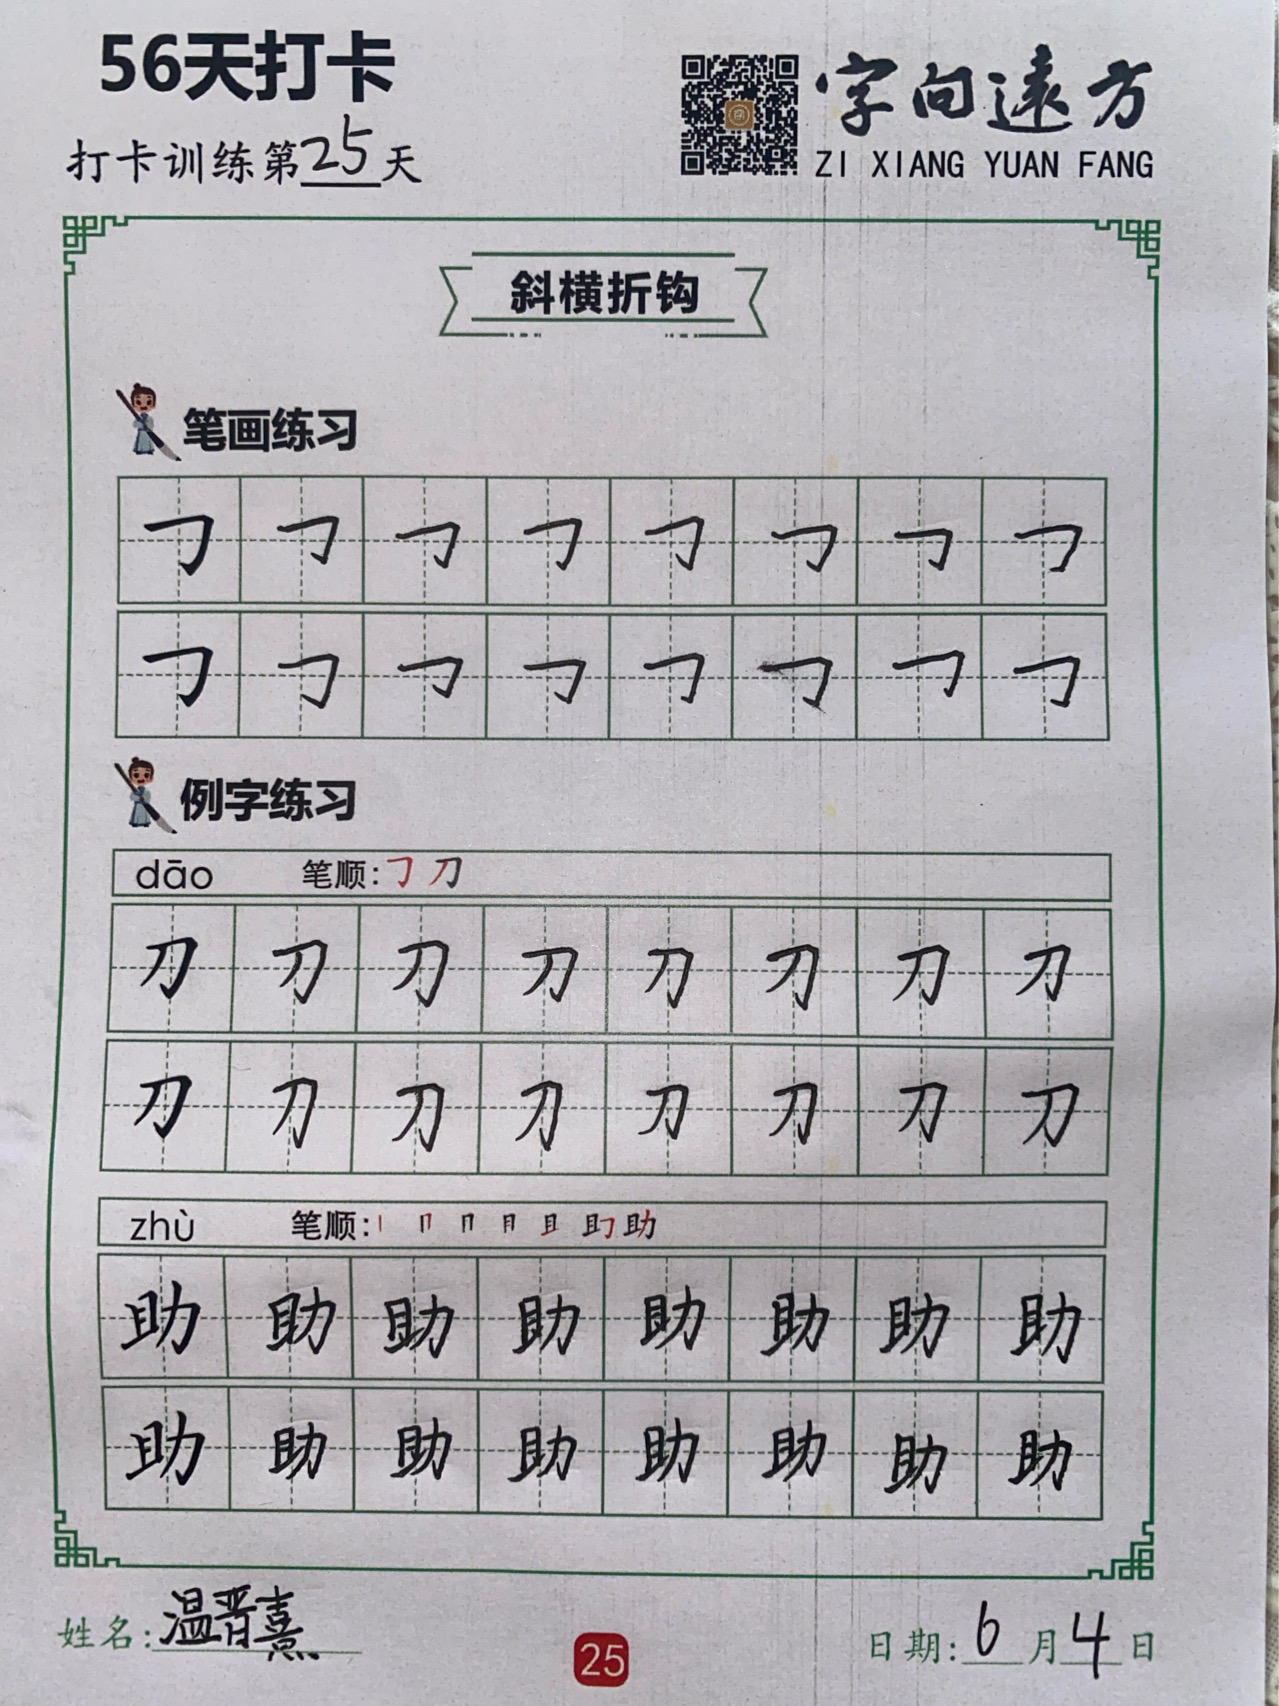 56天打卡
打卡训练第25天
字向遠方
ZI XIANG YUAN FANG
斜横折钩
笔画练习
𠃌 𠃌 𠃌 𠃌 𠃌 𠃌 𠃌 𠃌
𠃌 𠃌 𠃌 𠃌 𠃌 𠃌 𠃌 𠃌
例字练习
dāo 笔顺:𠃌 刀
刀 刀 刀 刀 刀 刀 刀 刀
刀 刀 刀 刀 刀 刀 刀 刀
zhù 笔顺:丨 冂 冂 月 且 助 助
助 助 助 助 助 助 助 助
助 助 助 助 助 助 助 助
姓名:温晋熹
25
日期:6月4日